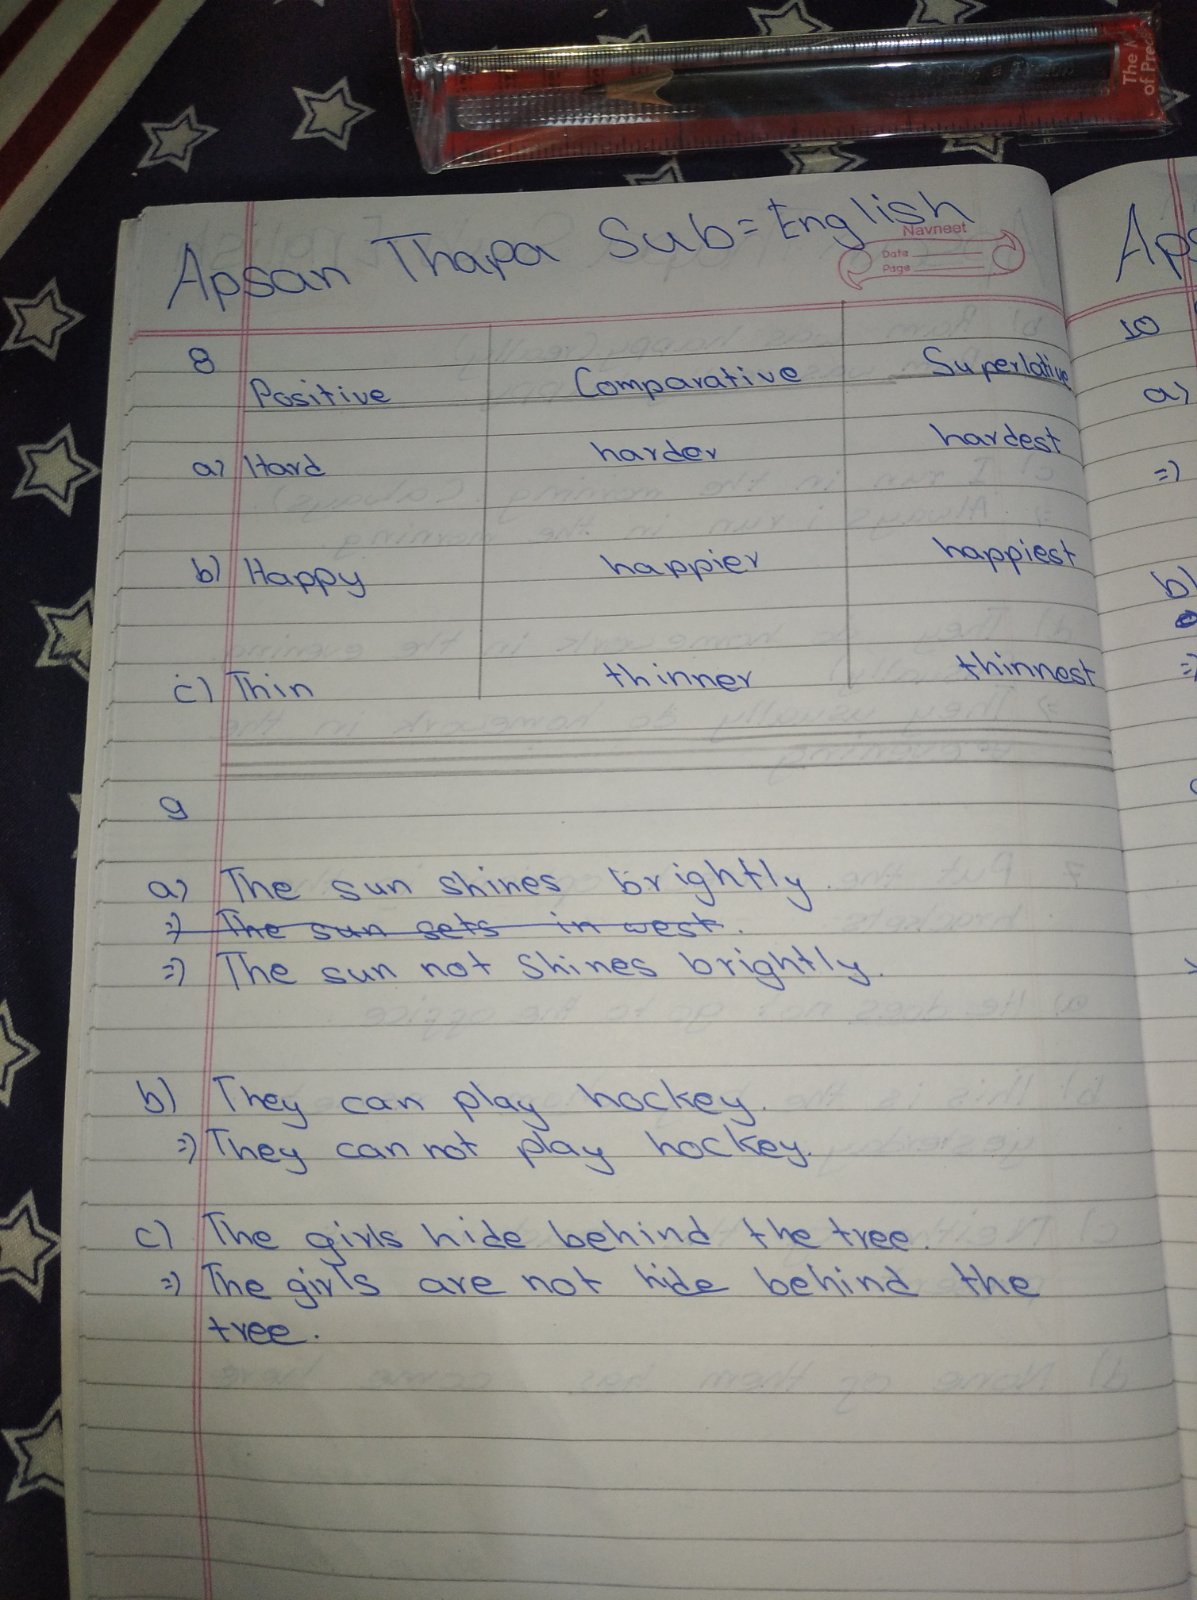 The N
of Pre
Apsan Thapa Sub=English
Navneet
Date
Page
8
Positive Comparative Superlative
a) Hard harder hardest
b) Happy happier happiest
c) Thin thinner thinnest
9
a) The sun shines brightly.
=) The sun sets in west.
=) The sun not shines brightly.
b) They can play hockey.
=) They can not play hockey.
c) The girls hide behind the tree.
=) The girls are not hide behind the
tree.
Aps
10
a)
=)
b)
=)